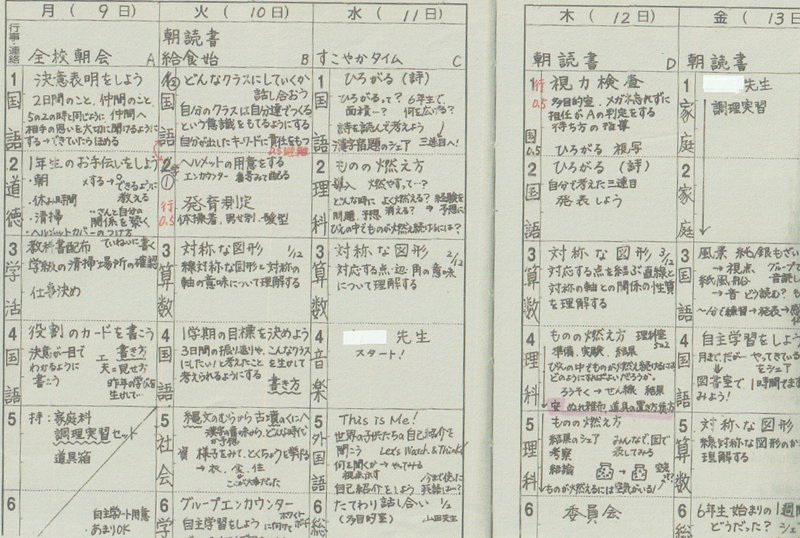 月 ( 9日)
行事・連絡
全校朝会 A
1 国語
決意表明をしよう
2日間のこと、仲間のこと
5の2の時と同じように 仲間へ
相手の思いを大切に聞けるように
する→できていたらほめる
2 道徳
1年生のお手伝いをしよう
・朝
・休み時間
・清掃
できるように
教える
関係を築く
3 学活
教科書配布 ていねいに書く
学級の清掃場所の確認
仕事決め
4 国語
役割のカードを書こう
決意が一目で
わかるように
書こう
工夫
書き方
見せ方
昨年の学びを
生かして
5
持:家庭科
調理実習セット
道具箱
6
自主学ノート用意
あまりOK
火 ( 10日)
朝読書
給食始 B
1 国語
どんなクラスにしていくか
話し合おう
自分のクラスは自分達でつくる
という意識をもてるようにする
自分が出したキーワードに責任をもつ
2
行 0.5
ヘルメットの用意をする
エンカウンター
発育測定
体操着、男女別、
3 算数
対称な図形 1/12
線対称な図形と対称の
軸の意味について理解する
4 国語
1学期の目標を決めよう
3日間の振り返りや、こんなクラス
にしたい!と考えたことを生かして
考えられるようにする
書き方
5 社会
縄文のむらから古墳のくにへ
資様子をみて、とくちょうを挙げる
→衣、食、住
6 学
グループエンカウンター
自主学習をしよう
に向けて
水 ( 11日)
すこやかタイム C
1 国語
ひろがる(詩)
ひろがるって? 6年生で
面積…? 何を広げる?
詩を読んで考えよう ↓
漢字宿題のシェア 三連目へ!
2 理科
ものの燃え方
導入 燃やすって…?
どんな時によく燃える? 経験を
問題、予想 消える? → 予想に
びんの中でものが燃え続けるには?
3 算数
対称な図形 2/12
対応する点、辺、角の意味
について理解する
4 音楽
先生
スタート!
5 外国語
This is Me!
世界の子供たちの自己紹介を
聞こう Let's Watch & Think
何を聞くか→やってみる
自己紹介をしよう
今まで使った
英語は…?
6 総
たてわり話し合い 1/2
(多目的室)
木 ( 12日)
朝読書 D
1
行 0.5
国 0.5
視力検査
多目的室、メガネ忘れずに
担任がAの判定をする
待ち方の指導
ひろがる 視写
2 国語
ひろがる(詩)
自分で考えた三連目
発表しよう
3 算数
対称な図形 3/12
対応する点を結ぶ直線と
対称の軸との関係の性質
を理解する
4 理科
ものの燃え方 理科室
準備、実験、結果
びんの中でものが燃え続けるには
どのようにすればよいだろうか。
ろうそく→せん香 結果
安 ぬれ雑巾、道具の置き方
5 理科
ものの燃え方
結果のシェア みんなで、図で
考察 表してみる
結論
空気
ものが燃えるには空気がいる!
6
委員会
金 ( 13日
朝読書
1 家庭
先生
調理実習
2 家庭
3 国語
風景 純銀もざい
→視点
紙風船 音読
→音 どう読む?
〜分で練習→発表→
4 国語
自主学習をしよう
月までだが… やってきている
をシェア
図書室で1時間でまず
みよう!
5 算数
対称な図形
線対称な図形のか
理解する
6 総
6年生始まりの1週間
どうだった? シェ